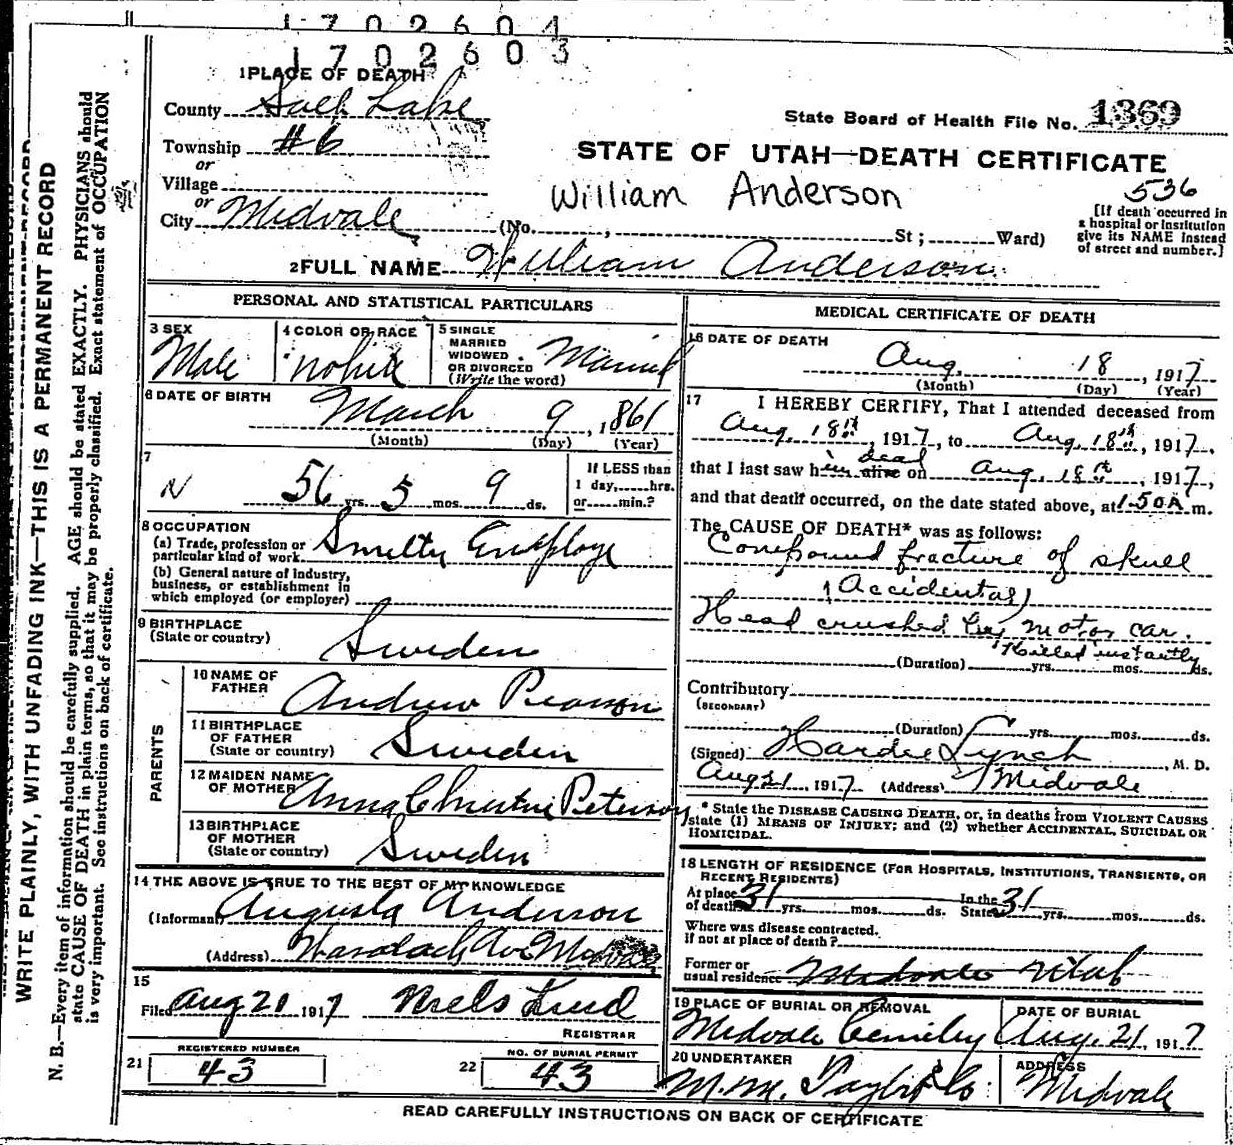 1 7 0 2 6 0 4
1 7 0 2 6 0 3
1 PLACE OF DEATH
County Salt Lake
Township #6
or
Village
or
City Midvale
(No. , St ; Ward)
State Board of Health File No. 1369
STATE OF UTAH—DEATH CERTIFICATE
William Anderson
536
[If death occurred in
a hospital or institution
give its NAME instead
of street and number.]
2 FULL NAME William Anderson
PERSONAL AND STATISTICAL PARTICULARS
3 SEX
Male
4 COLOR OR RACE
White
5 SINGLE
MARRIED
WIDOWED
OR DIVORCED
(Write the word)
Married
6 DATE OF BIRTH
March 9, 1861
(Month) (Day) (Year)
7
N
56 yrs. 5 mos. 9 ds.
If LESS than
1 day, hrs.
or min.?
8 OCCUPATION
(a) Trade, profession or
particular kind of work. Smelter Employe
(b) General nature of industry,
business, or establishment in
which employed (or employer)
9 BIRTHPLACE
(State or country)
Sweden
PARENTS
10 NAME OF
FATHER
Andrew Pearson
11 BIRTHPLACE
OF FATHER
(State or country)
Sweden
12 MAIDEN NAME
OF MOTHER
Anna Christine Peterson
13 BIRTHPLACE
OF MOTHER
(State or country)
Sweden
14 THE ABOVE IS TRUE TO THE BEST OF MY KNOWLEDGE
(Informant Augusta Anderson
(Address) Av Midvale
15
Filed Aug 20 1917 Niels Lind
REGISTRAR
21
REGISTERED NUMBER
43
22
NO. OF BURIAL PERMIT
43
MEDICAL CERTIFICATE OF DEATH
16 DATE OF DEATH
Aug. 18, 1917
(Month) (Day) (Year)
17 I HEREBY CERTIFY, That I attended deceased from
Aug. 18th, 1917, to Aug. 18th, 1917,
that I last saw him alive dead on Aug. 18th, 1917,
and that death occurred, on the date stated above, at 1:50A m.
The CAUSE OF DEATH* was as follows:
Compound fracture of skull
(Accidental)
Head crushed by motor car.
Killed instantly
(Duration) yrs. mos. ds.
Contributory
(SECONDARY)
(Duration) yrs. mos. ds.
(Signed) Hardie Lynch, M. D.
Aug 21, 1917 (Address) Midvale
* State the DISEASE CAUSING DEATH, or, in deaths from VIOLENT CAUSES
state (1) MEANS OF INJURY; and (2) whether ACCIDENTAL, SUICIDAL OR
HOMICIDAL.
18 LENGTH OF RESIDENCE (FOR HOSPITALS, INSTITUTIONS, TRANSIENTS, OR
RECENT RESIDENTS)
At place
of death 31 yrs. mos. ds.
In the
State 31 yrs. mos. ds.
Where was disease contracted.
if not at place of death?
Former or
usual residence Midvale Utah
19 PLACE OF BURIAL OR REMOVAL
Midvale Cemetery
DATE OF BURIAL
Aug. 21, 1917
20 UNDERTAKER
M. M. Taylor & Co
ADDRESS
Midvale
READ CAREFULLY INSTRUCTIONS ON BACK OF CERTIFICATE
WRITE PLAINLY, WITH UNFADING INK—THIS IS A PERMANENT RECORD
N. B.—Every item of information should be carefully supplied. AGE should be stated EXACTLY. PHYSICIANS should
state CAUSE OF DEATH in plain terms, so that it may be properly classified. Exact statement of OCCUPATION
is very important. See instructions on back of certificate.